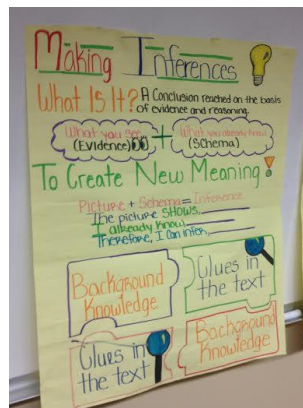 Making Inferences
What Is It? A Conclusion reached on the basis
of evidence and reasoning.
What you see
(Evidence)
+
What you already know
(Schema)
To Create New Meaning!
Picture + Schema = Inference
The picture shows
I already know
Therefore, I can infer,
Background
Knowledge
Clues in
the text
Clues in
the text
Background
Knowledge